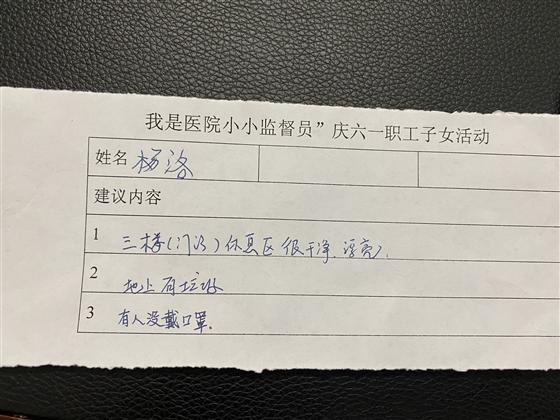 我是医院小小监督员”庆六一职工子女活动
姓名 杨洛
建议内容
1 三楼(门诊)休息区很干净.漂亮.
2 地上有垃圾
3 有人没戴口罩.